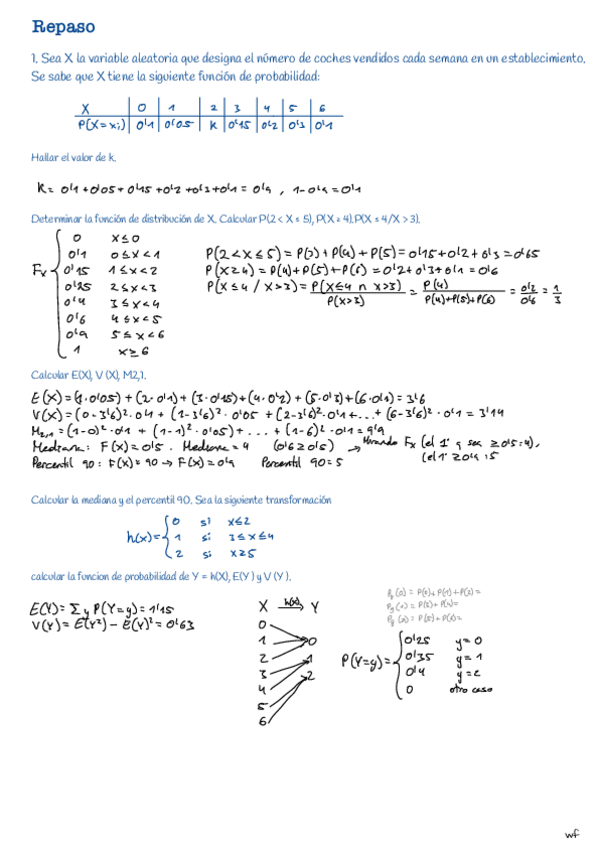 Repaso
1. Sea X la variable aleatoria que designa el número de coches vendidos cada semana en un establecimiento.
Se sabe que X tiene la siguiente función de probabilidad:
X | 0 | 1 | 2 | 3 | 4 | 5 | 6
P(X=xi) | 0'1 | 0'05 | K | 0'15 | 0'2 | 0'3 | 0'1
Hallar el valor de k.
K = 0'1 + 0'05 + 0'15 + 0'2 + 0'3 + 0'1 = 0'9 , 1 - 0'9 = 0'1
Determinar la función de distribución de X. Calcular P(2 < X ≤ 5), P(X ≥ 4).P(X ≤ 4/X > 3).
Fx
0 x≤0
0'1 0≤x<1
0'15 1≤x<2
0'25 2≤x<3
0'4 3≤x<4
0'6 4≤x<5
0'9 5≤x<6
1 x≥6
P(2<X≤5) = P(3) + P(4) + P(5) = 0'15 + 0'2 + 0'3 = 0'65
P(X≥4) = P(4) + P(5) + P(6) = 0'2 + 0'3 + 0'1 = 0'6
P(X≤4 / X>3) = P(X≤4 ∩ X>3) / P(X>3) = P(4) / P(4)+P(5)+P(6) = 0'2 / 0'6 = 1/3
Calcular E(X), V (X), M2,1.
E(X) = (1·0'05) + (2·0'1) + (3·0'15) + (4·0'2) + (5·0'3) + (6·0'1) = 3'6
V(X) = (0-3'6)²·0'1 + (1-3'6)²·0'05 + (2-3'6)²·0'1 + ... + (6-3'6)²·0'1 = 3'14
M2,1 = (1-0)²·0'1 + (1-1)²·0'05) + ... + (1-6)²·0'1 = 9'9
Mediana: F(X) = 0'5 . Mediana = 4 (0'6 ≥ 0'5) → Mirando Fx (el 1º q sea ≥ 0'5 = 4),
Percentil 90: F(X) = 90 → F(X) = 0'9 Percentil 90 = 5 (el 1º ≥ 0'9 : 5
Calcular la mediana y el percentil 90. Sea la siguiente transformación
h(x) =
0 si x≤2
1 si 3≤x≤4
2 si x≥5
calcular la funcion de probabilidad de Y = h(X), E(Y ) y V (Y ).
E(Y) = Σ y P(Y=y) = 1'15
V(Y) = E(Y²) - E(Y)² = 0'63
X h(x) → Y
0
1 0
2 1
3 2
4
5
6
Py(0) = P(0) + P(1) + P(2) =
P(Y=y) =
0'25 y=0
0'35 y=1
0'4 y=2
0 otro caso
wf